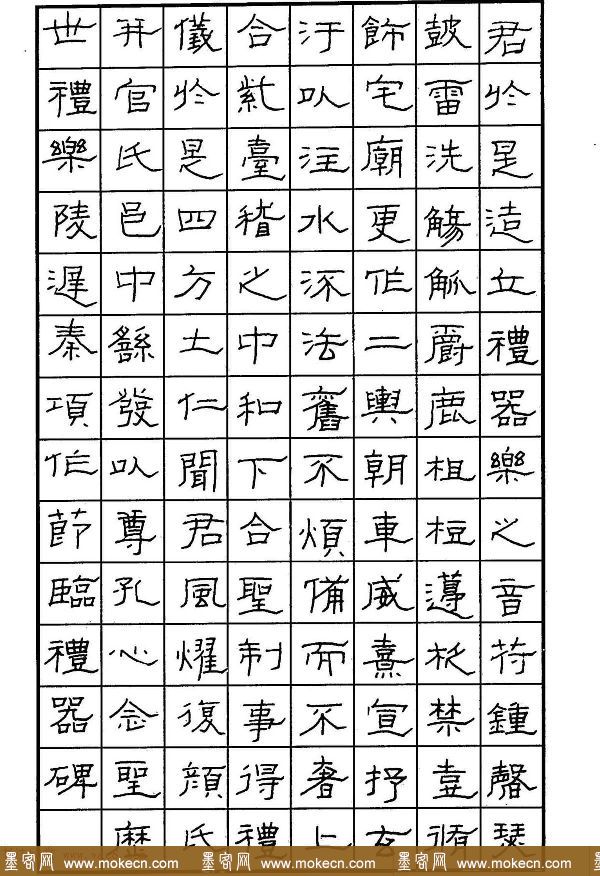 君於是造立禮器樂之音符鍾磬瑟
皷雷洗觴觚爵鹿柤梪籩柉禁壺脩
飾宅廟更作二輿朝車威熹宣抒玄
汙以注水流法舊不煩備而不奢上
合紫臺稽之中和下合聖制事得禮
儀於是四方土仁聞君風燿復顏氏
并官氏邑中繇發以尊孔心念聖歷
世禮樂陵遲秦項作節臨禮器碑
墨客网 www.mokecn.com 墨客网 www.mokecn.com 墨客网 www.mokecn.com